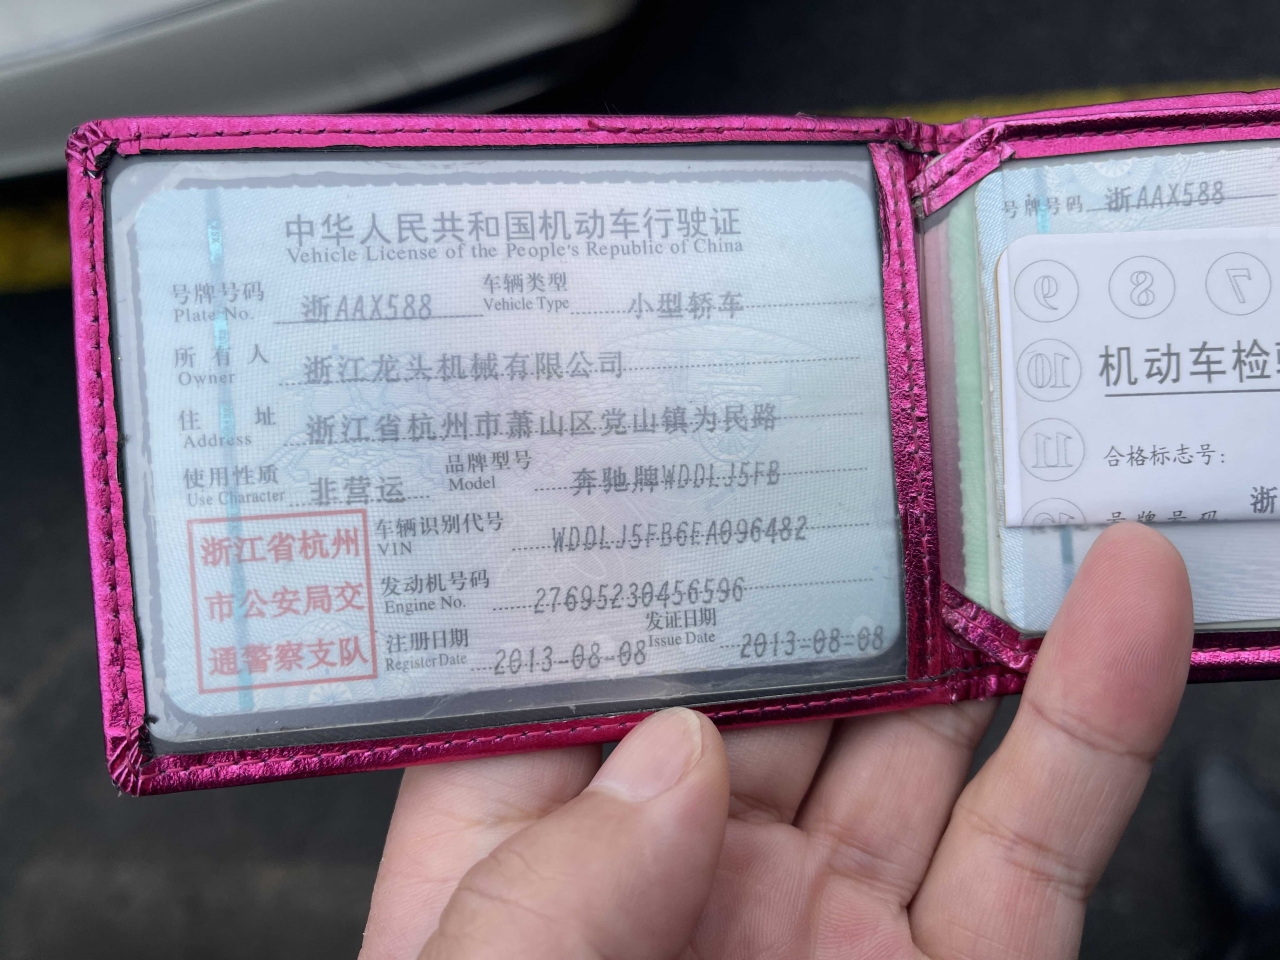 中华人民共和国机动车行驶证
Vehicle License of the People's Republic of China
号牌号码 浙AAX588 车辆类型 小型轿车
Plate No. Vehicle Type
所有人 浙江龙头机械有限公司
Owner
住址 浙江省杭州市萧山区党山镇为民路
Address
使用性质 非营运 品牌型号 奔驰牌WDDLJ5FB
Use Character Model
浙江省杭州
市公安局交
通警察支队
车辆识别代号 WDDLJ5FB6EA096482
VIN
发动机号码 27695230456596
Engine No.
注册日期 2013-08-08 发证日期 2013-08-08
Register Date Issue Date
号牌号码 浙AAX588
9 8 7
10
11
机动车检
合格标志号:
浙
号牌号码